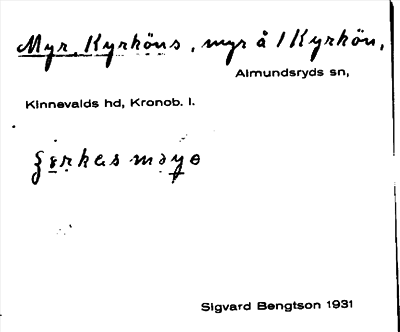 Myr, Kyrköns, myr å 1 Kyrkön,
Almundsryds sn,
Kinnevalds hd, Kronob. l.
Sigvard Bengtson 1931